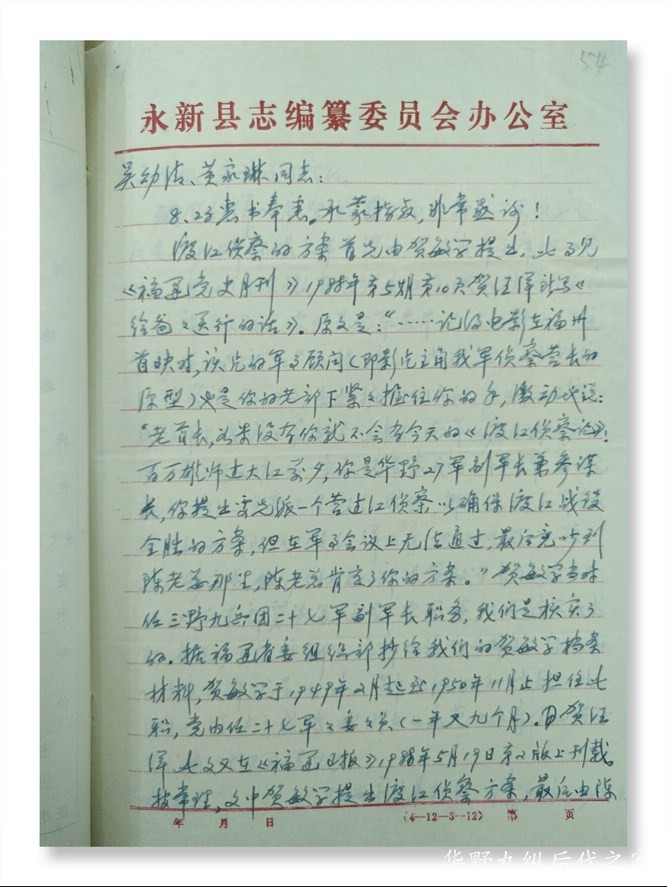 54
永新县志编纂委员会办公室
吴幼洁、黄家琳同志：
8.23惠书奉悉。承蒙指教，非常感谢！
渡江侦察的方案首先由贺敏学提出，此事见
《福建党史月刊》1988年第5期第10页贺江泽所写《
给爸爸送行的话》。原文是：“……记得电影在福州
首映时，该片的军事顾问（即影片主角我军侦察营长的
原型）也是你的老部下紧紧握住你的手，激动地说：
“老首长，如果没有你就不会有今天的《渡江侦察记》！
百万雄师过大江前夕，你是华野27军副军长兼参谋
长，你提出要先派一个营过江侦察，以确保渡江战役
全胜的方案，但在军事会议上无法通过，最后竟吵到
陈老总那里，陈老总肯定了你的方案。”贺敏学当时
任三野九兵团二十七军副军长职务，我们是核实了
的。据福建省委组织部抄给我们的贺敏学档案
材料，贺敏学于1949年2月起至1950年11月止担任此
职，党内任二十七军军委委员（一年又九个月）。贺江
泽此文又在《福建日报》1988年5月19日第2版上刊载。
按常理，文中贺敏学提出渡江侦察方案，最后由陈
年 月 日 （4—12—3—12） 第 页
华野九纵后代之家